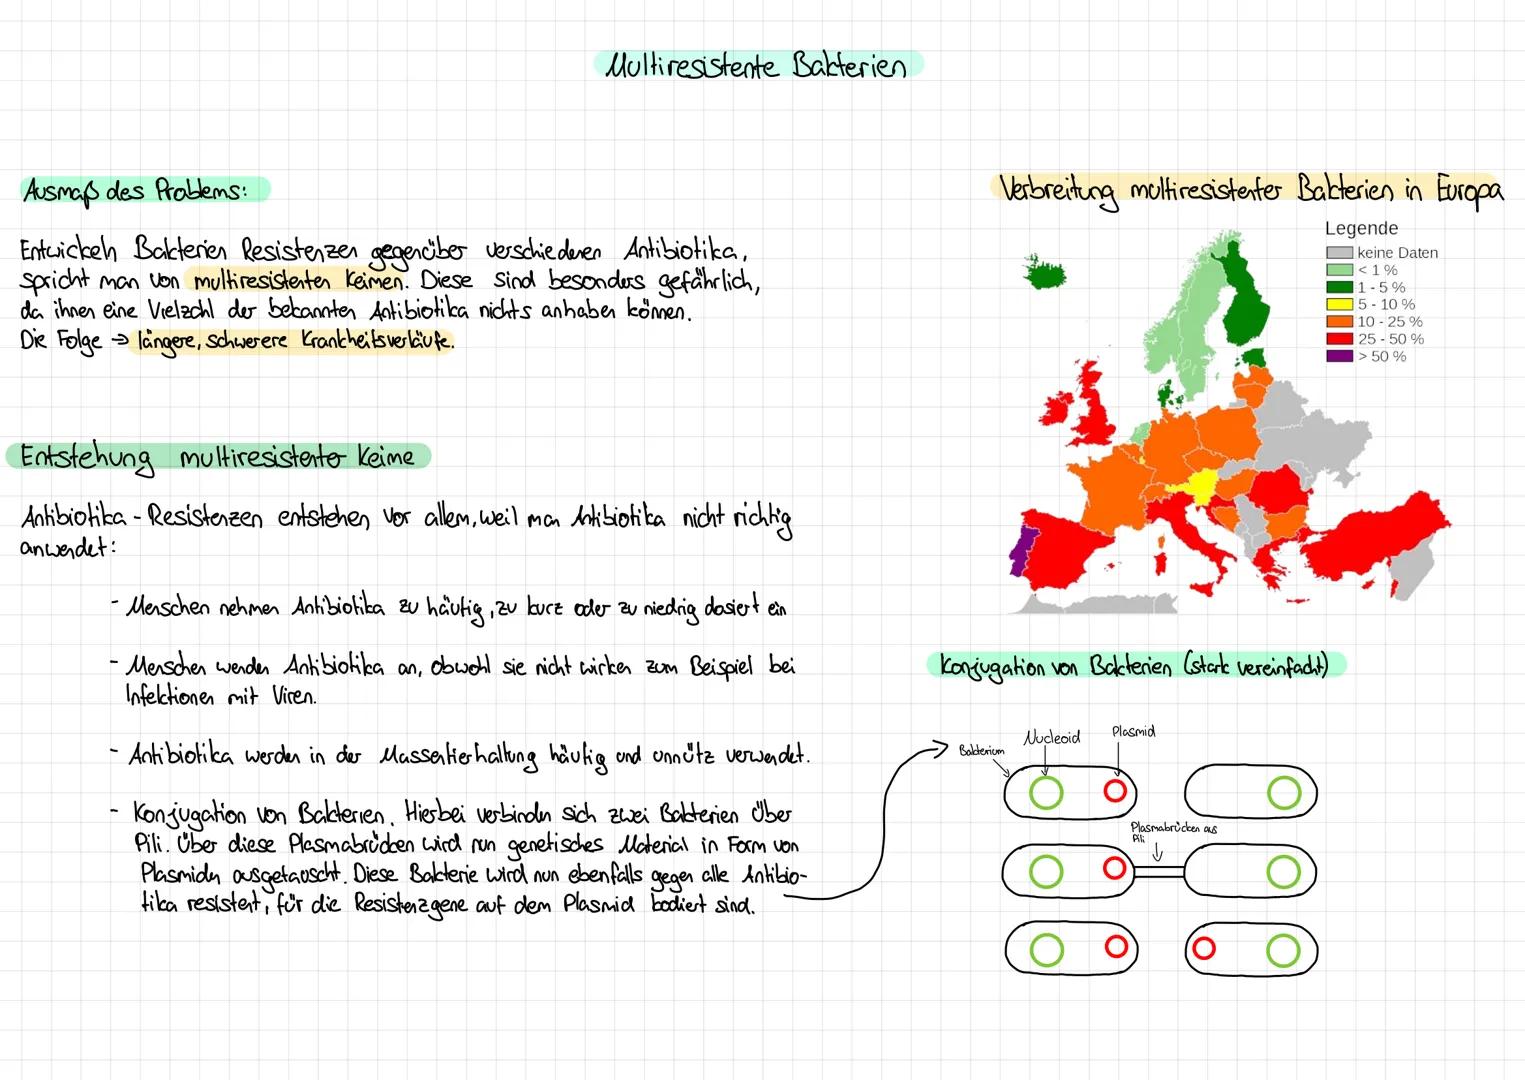 Multiresistente Bakterien
Ausmaß des Problems:
Entwickeln Bakterien Resistenzen gegenüber verschiedenen Antibiotika,
spricht man von multiresistenten Keimen. Diese sind besonders gefährlich,
da ihnen eine Vielzahl der bekannten Antibiotika nichts anhaben können.
Die Folge → längere, schwerere Krankheitsverläufe.
Entstehung multiresistenter Keime
Antibiotika - Resistenzen entstehen vor allem, weil man Antibiotika nicht richtig
anwendet:
- Menschen nehmen Antibiotika zu häufig, zu kurz oder zu niedrig dosiert ein
- Menschen wenden Antibiotika an, obwohl sie nicht wirken zum Beispiel bei
Infektionen mit Viren.
- Antibiotika werden in der Massentierhaltung häufig und unnütz verwendet.
- Konjugation von Bakterien. Hierbei verbinden sich zwei Bakterien über
Pili. Über diese Plasmabrücken wird nun genetisches Material in Form von
Plasmiden ausgetauscht. Diese Bakterie wird nun ebenfalls gegen alle Antibio-
tika resistent, für die Resistenzgene auf dem Plasmid codiert sind.
Verbreitung multiresistenter Bakterien in Europa
Legende
keine Daten
< 1 %
1 - 5 %
5 - 10 %
10 - 25 %
25 - 50 %
> 50 %
Konjugation von Bakterien (stark vereinfacht)
Bakterium
Nucleoid
Plasmid
Plasmabrücken aus
Pili